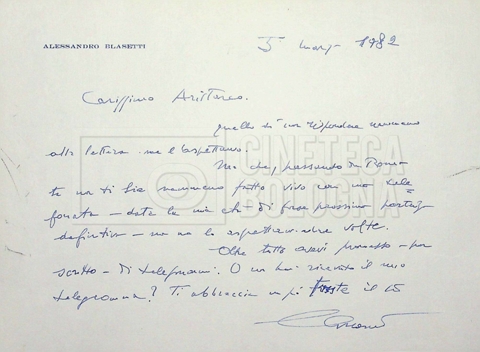 ALESSANDRO BLASETTI
5 marzo 1982
Carissimo Aristarco.
quello di non rispondere nemmeno
alla lettera me l'aspettavo.
Ma che, passando da Roma
te non ti sia nemmeno fatto vivo con una tele=
fonata - data la mia età - di pur prossimo
definitivo - no me lo aspettavo
Oltre tutto avevi promesso - per
scritto - di telefonarmi. O non hai ricevuto il mio
telegramma? Ti abbraccia un pò triste il
CINETECA
BOLOGNA